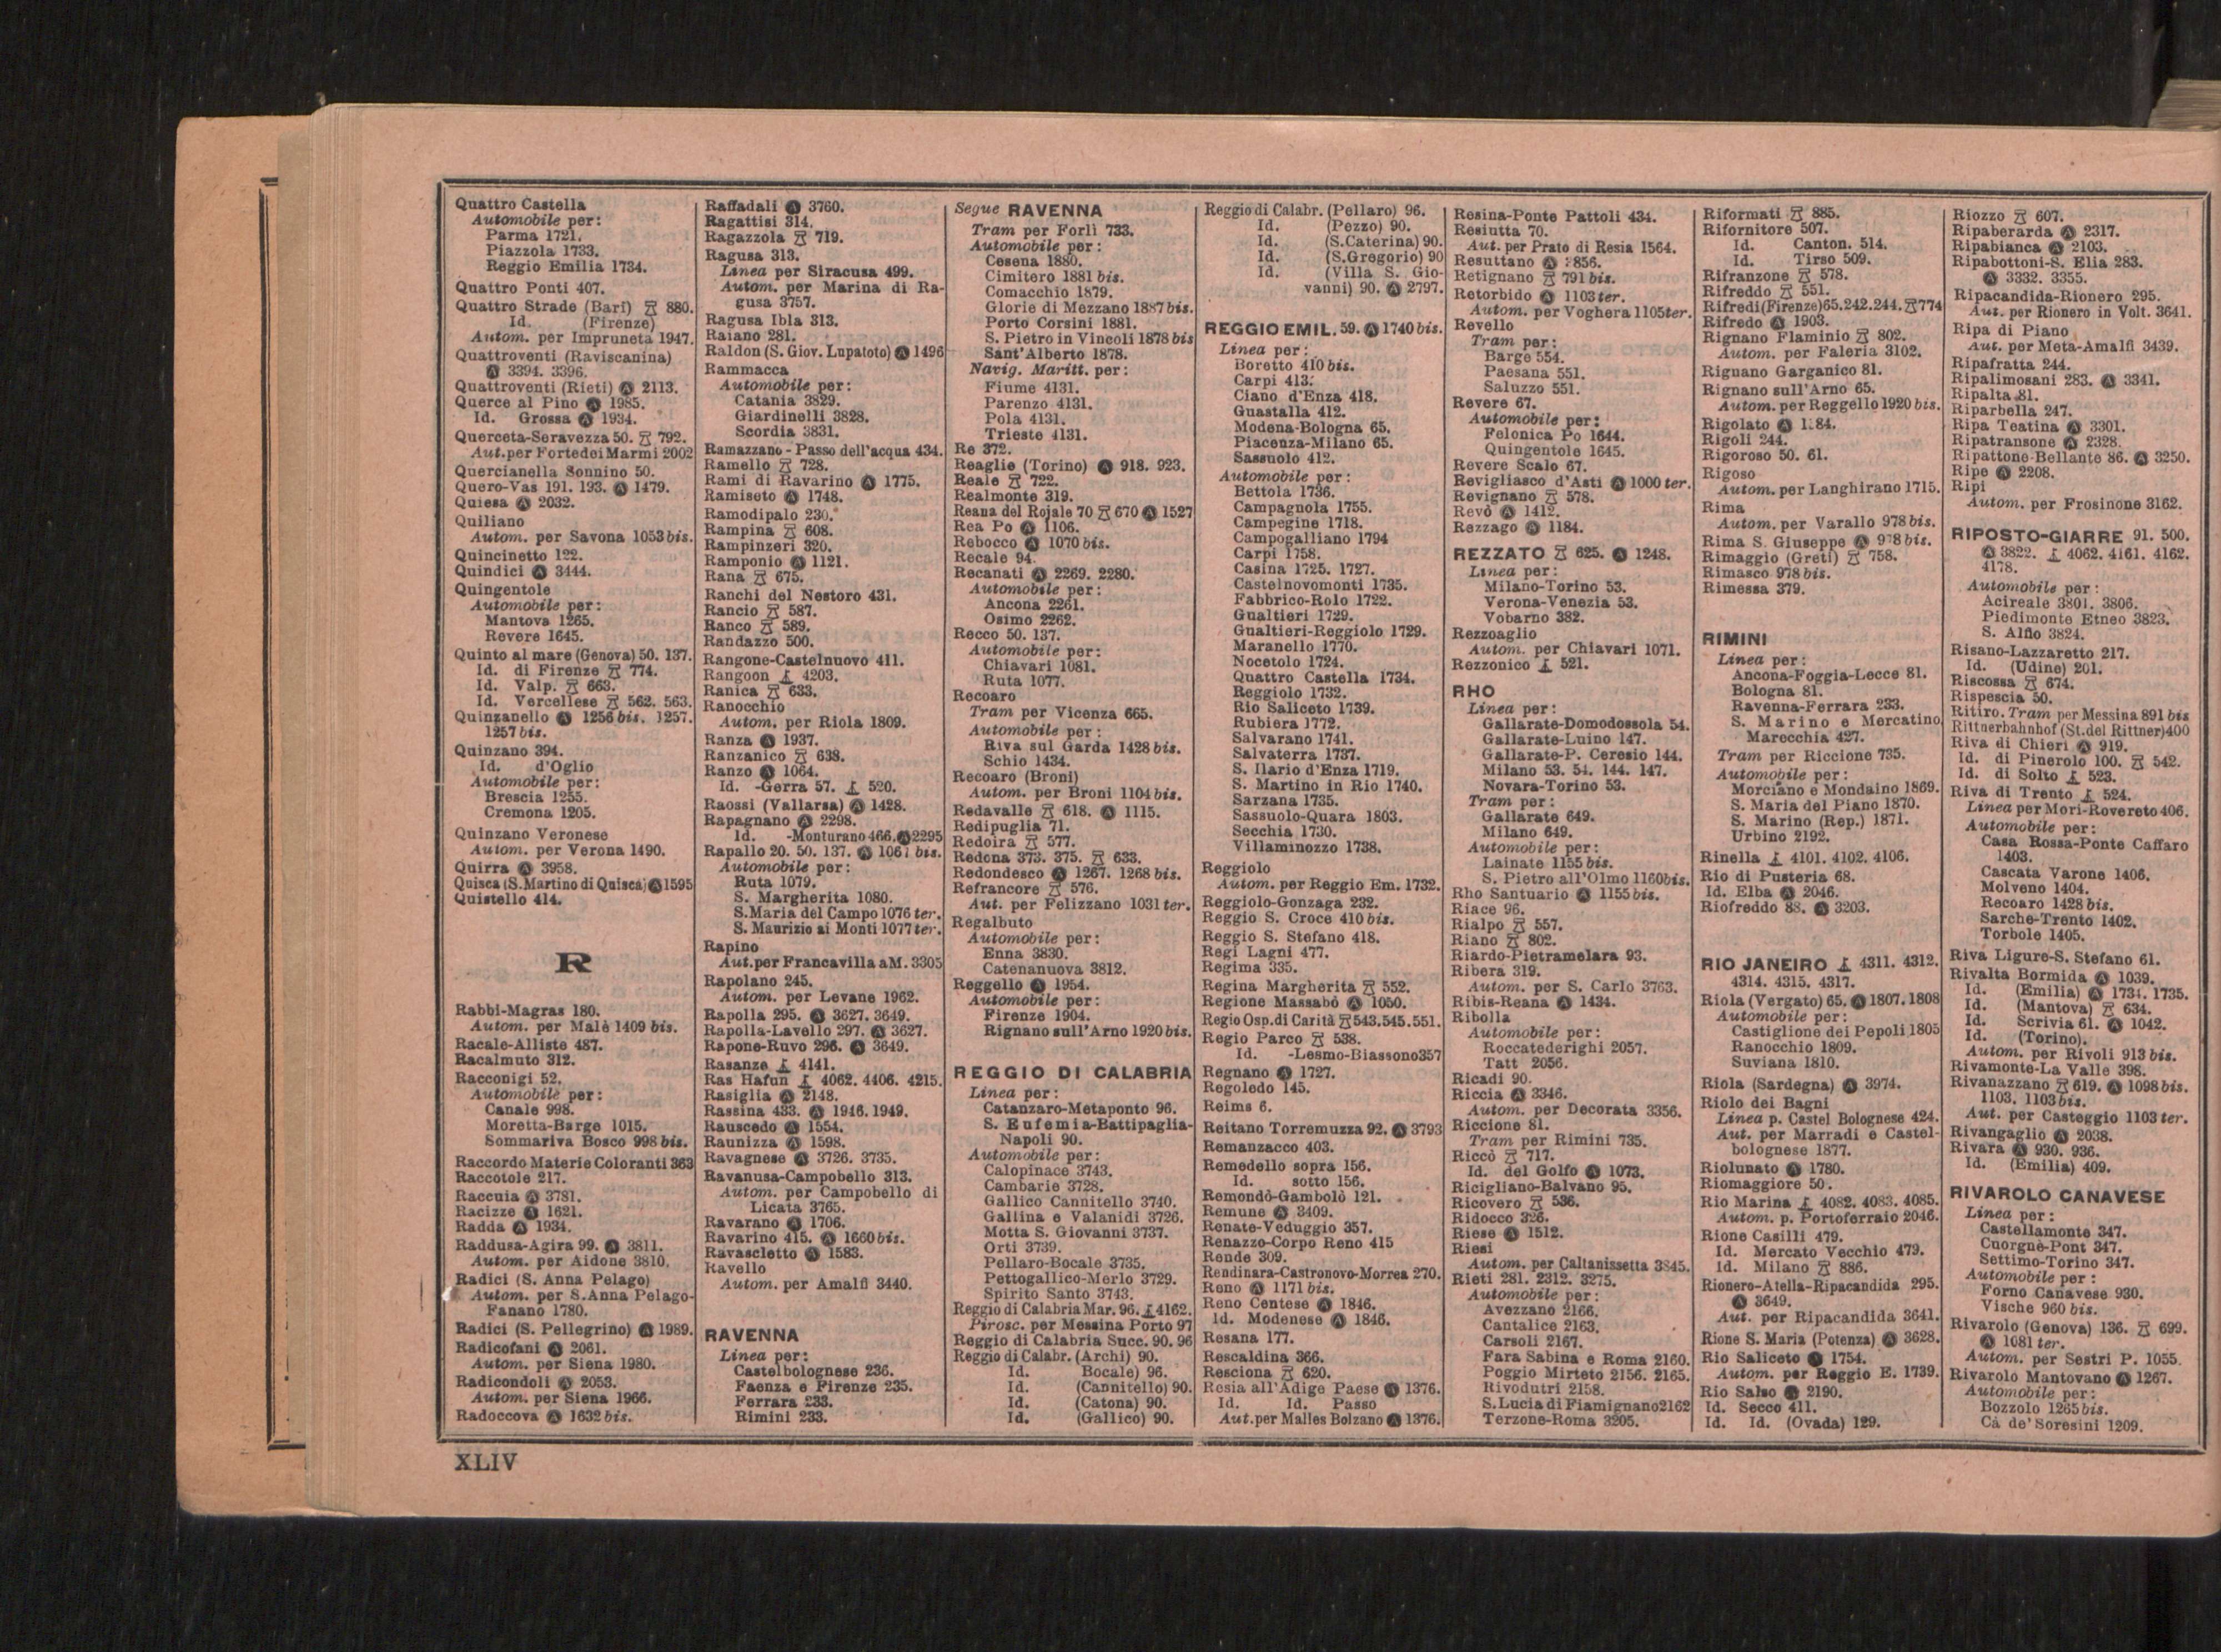 Quattro Castella
Automobile per:
Parma 1721.
Piazzola 1733.
Reggio Emilia 1734.
Quattro Ponti 407.
Quattro Strade (Bari) 880.
Id. (Firenze)
Autom. per Impruneta 1947.
Quattroventi (Raviscanina)
Ⓐ 3394. 3396.
Quattroventi (Rieti) Ⓐ 2113.
Querce al Pino Ⓐ 1985.
Id. Grossa Ⓐ 1934.
Querceta-Seravezza 50. 792.
Aut. per Forte dei Marmi 2002
Quercianella Sonnino 50.
Quero-Vas 191. 193. Ⓐ 1479.
Quiesa Ⓐ 2032.
Quiliano
Autom. per Savona 1053 bis.
Quincinetto 122.
Quindici Ⓐ 3444.
Quingentole
Automobile per:
Mantova 1265.
Revere 1645.
Quinto al mare (Genova) 50. 137.
Id. di Firenze 774.
Id. Valp. 663.
Id. Vercellese 562. 563.
Quinzanello Ⓐ 1256 bis. 1257.
1257 bis.
Quinzano 394.
Id. d'Oglio
Automobile per:
Brescia 1255.
Cremona 1205.
Quinzano Veronese
Autom. per Verona 1490.
Quirra Ⓐ 3958.
Quisca (S. Martino di Quisca) Ⓐ 1595
Quistello 414.
R
Rabbi-Magras 180.
Autom. per Malè 1409 bis.
Racale-Alliste 487.
Racalmuto 312.
Racconigi 52.
Automobile per:
Canale 998.
Moretta-Barge 1015.
Sommariva Bosco 998 bis.
Raccordo Materie Coloranti 363
Raccotole 217.
Raccuia Ⓐ 3781.
Racizze Ⓐ 1621.
Radda Ⓐ 1934.
Raddusa-Agira 99. Ⓐ 3811.
Autom. per Aidone 3810.
Radici (S. Anna Pelago)
Autom. per S. Anna Pelago-
Fanano 1780.
Radici (S. Pellegrino) Ⓐ 1989.
Radicofani Ⓐ 2061.
Autom. per Siena 1980.
Radicondoli Ⓐ 2053.
Autom. per Siena 1966.
Radoccova Ⓐ 1632 bis.
Raffadali Ⓐ 3760.
Ragattisi 314.
Ragazzola 719.
Ragusa 313.
Linea per Siracusa 499.
Autom. per Marina di Ra-
gusa 3757.
Ragusa Ibla 313.
Raiano 281.
Raldon (S. Giov. Lupatoto) Ⓐ 1496
Rammacca
Automobile per:
Catania 3829.
Giardinelli 3828.
Scordia 3831.
Ramazzano - Passo dell'acqua 434.
Ramello 728.
Rami di Ravarino Ⓐ 1775.
Ramiseto Ⓐ 1748.
Ramodipalo 230.
Rampina 608.
Rampinzeri 320.
Ramponio Ⓐ 1121.
Rana 675.
Ranchi del Nestoro 431.
Rancio 587.
Ranco 589.
Randazzo 500.
Rangone-Castelnuovo 411.
Rangoon 4203.
Ranica 633.
Ranocchio
Autom. per Riola 1809.
Ranza Ⓐ 1937.
Ranzanico 638.
Ranzo Ⓐ 1064.
Id. -Gerra 57. 520.
Raossi (Vallarsa) Ⓐ 1428.
Rapagnano Ⓐ 2298.
Id. -Monturano 466. Ⓐ 2295
Rapallo 20. 50. 137. Ⓐ 1061 bis.
Automobile per:
Ruta 1079.
S. Margherita 1080.
S. Maria del Campo 1076 ter.
S. Maurizio ai Monti 1077 ter.
Rapino
Aut. per Francavilla a M. 3305
Rapolano 245.
Autom. per Levane 1962.
Rapolla 295. Ⓐ 3627. 3649.
Rapolla-Lavello 297. Ⓐ 3627.
Rapone-Ruvo 296. Ⓐ 3649.
Rasanze 4141.
Ras Hafun 4062. 4406. 4215.
Rasiglia Ⓐ 2148.
Rassina 433. Ⓐ 1946. 1949.
Rauscedo Ⓐ 1554.
Raunizza Ⓐ 1598.
Ravagnese Ⓐ 3726. 3735.
Ravanusa-Campobello 313.
Autom. per Campobello di
Licata 3765.
Ravarano Ⓐ 1706.
Ravarino 415. Ⓐ 1660 bis.
Ravascletto Ⓐ 1583.
Ravello
Autom. per Amalfi 3440.
RAVENNA
Linea per:
Castelbolognese 236.
Faenza e Firenze 235.
Ferrara 233.
Rimini 233.
Segue RAVENNA
Tram per Forlì 733.
Automobile per:
Cesena 1880.
Cimitero 1881 bis.
Comacchio 1879.
Glorie di Mezzano 1887 bis.
Porto Corsini 1881.
S. Pietro in Vincoli 1878 bis
Sant'Alberto 1878.
Navig. Maritt. per:
Fiume 4131.
Parenzo 4131.
Pola 4131.
Trieste 4131.
Re 372.
Reaglie (Torino) Ⓐ 918. 923.
Reale 722.
Realmonte 319.
Reana del Rojale 70 670 Ⓐ 1527
Rea Po Ⓐ 1106.
Rebocco Ⓐ 1070 bis.
Recale 94.
Recanati Ⓐ 2269. 2280.
Automobile per:
Ancona 2261.
Osimo 2262.
Recco 50. 137.
Automobile per:
Chiavari 1081.
Ruta 1077.
Recoaro
Tram per Vicenza 665.
Automobile per:
Riva sul Garda 1428 bis.
Schio 1434.
Recoaro (Broni)
Autom. per Broni 1104 bis.
Redavalle 618. Ⓐ 1115.
Redipuglia 71.
Redoira 577.
Redona 373. 375. 633.
Redondesco Ⓐ 1267. 1268 bis.
Refrancore 576.
Aut. per Felizzano 1031 ter.
Regalbuto
Automobile per:
Enna 3830.
Catenanuova 3812.
Reggello Ⓐ 1954.
Automobile per:
Firenze 1904.
Rignano sull'Arno 1920 bis.
REGGIO DI CALABRIA
Linea per:
Catanzaro-Metaponto 96.
S. Eufemia-Battipaglia-
Napoli 90.
Automobile per:
Calopinace 3743.
Cambarie 3728.
Gallico Cannitello 3740.
Gallina e Valanidi 3726.
Motta S. Giovanni 3737.
Orti 3739.
Pellaro-Bocale 3735.
Pettogallico-Merlo 3729.
Spirito Santo 3743.
Reggio di Calabria Mar. 96. 4162.
Pirosc. per Messina Porto 97
Reggio di Calabria Succ. 90. 96
Reggio di Calabr. (Archi) 90.
Id. Bocale) 96.
Id. (Cannitello) 90.
Id. (Catona) 90.
Id. (Gallico) 90.
Reggio di Calabr. (Pellaro) 96.
Id. (Pezzo) 90.
Id. (S. Caterina) 90.
Id. (S. Gregorio) 90
Id. (Villa S. Gio-
vanni) 90. Ⓐ 2797.
REGGIO EMIL. 59. Ⓐ 1740 bis.
Linea per:
Boretto 410 bis.
Carpi 413.
Ciano d'Enza 418.
Guastalla 412.
Modena-Bologna 65.
Piacenza-Milano 65.
Sassuolo 412.
Automobile per:
Bettola 1736.
Campagnola 1755.
Campegine 1718.
Campogalliano 1794
Carpi 1758.
Casina 1725. 1727.
Castelnovomonti 1735.
Fabbrico-Rolo 1722.
Gualtieri 1729.
Gualtieri-Reggiolo 1729.
Maranello 1770.
Nocetolo 1724.
Quattro Castella 1734.
Reggiolo 1732.
Rio Saliceto 1739.
Rubiera 1772.
Salvarano 1741.
Salvaterra 1737.
S. Ilario d'Enza 1719.
S. Martino in Rio 1740.
Sarzana 1735.
Sassuolo-Quara 1803.
Secchia 1730.
Villaminozzo 1738.
Reggiolo
Autom. per Reggio Em. 1732.
Reggiolo-Gonzaga 232.
Reggio S. Croce 410 bis.
Reggio S. Stefano 418.
Regi Lagni 477.
Regima 335.
Regina Margherita 552.
Regione Massabò Ⓐ 1050.
Regio Osp. di Carità 543. 545. 551.
Regio Parco 538.
Id. -Lesmo-Biassono 357
Regnano Ⓐ 1727.
Regoledo 145.
Reims 6.
Reitano Torremuzza 92. Ⓐ 3793
Remanzacco 403.
Remedello sopra 156.
Id. sotto 156.
Remondò-Gambolò 121.
Remune Ⓐ 3409.
Renate-Veduggio 357.
Renazzo-Corpo Reno 415
Rende 309.
Rendinara-Castronovo-Morrea 270.
Reno Ⓐ 1171 bis.
Reno Centese Ⓐ 1846.
Id. Modenese Ⓐ 1846.
Resana 177.
Rescaldina 366.
Resciona 620.
Resia all'Adige Paese Ⓐ 1376.
Id. Id. Passo
Aut. per Malles Bolzano Ⓐ 1376.
Resina-Ponte Pattoli 434.
Resiutta 70.
Aut. per Prato di Resia 1564.
Resuttano Ⓐ 856.
Retignano 791 bis.
Retorbido Ⓐ 1103 ter.
Autom. per Voghera 1105 ter.
Revello
Tram per:
Barge 554.
Paesana 551.
Saluzzo 551.
Revere 67.
Automobile per:
Felonica Po 1644.
Quingentole 1645.
Revere Scalo 67.
Revigliasco d'Asti Ⓐ 1000 ter.
Revignano 578.
Revò Ⓐ 1412.
Rezzago Ⓐ 1184.
REZZATO 625. Ⓐ 1248.
Linea per:
Milano-Torino 53.
Verona-Venezia 53.
Vobarno 382.
Rezzoaglio
Autom. per Chiavari 1071.
Rezzonico 521.
RHO
Linea per:
Gallarate-Domodossola 54.
Gallarate-Luino 147.
Gallarate-P. Ceresio 144.
Milano 53. 54. 144. 147.
Novara-Torino 53.
Tram per:
Gallarate 649.
Milano 649.
Automobile per:
Lainate 1155 bis.
S. Pietro all'Olmo 1160 bis.
Rho Santuario Ⓐ 1155 bis.
Riace 96.
Rialpo 557.
Riano 802.
Riardo-Pietramelara 93.
Ribera 319.
Autom. per S. Carlo 3763.
Ribis-Reana Ⓐ 1434.
Ribolla
Automobile per:
Roccatederighi 2057.
Tatt 2056.
Ricadi 90.
Riccia Ⓐ 3346.
Autom. per Decorata 3356.
Riccione 81.
Tram per Rimini 735.
Riccò 717.
Id. del Golfo Ⓐ 1073.
Ricigliano-Balvano 95.
Ricovero 536.
Ridocco 326.
Riese Ⓐ 1512.
Riesi
Autom. per Caltanissetta 3845.
Rieti 281. 2312. 3275.
Automobile per:
Avezzano 2166.
Cantalice 2163.
Carsoli 2167.
Fara Sabina e Roma 2160.
Poggio Mirteto 2156. 2165.
Rivodutri 2158.
S. Lucia di Fiamignano 2162
Terzone-Roma 3205.
Riformati 885.
Rifornitore 507.
Id. Canton. 514.
Id. Tirso 509.
Rifranzone 578.
Rifreddo 551.
Rifredi (Firenze) 65. 242. 244. 774
Rifredo Ⓐ 1903.
Rignano Flaminio 802.
Autom. per Faleria 3102.
Rignano Garganico 81.
Rignano sull'Arno 65.
Autom. per Reggello 1920 bis.
Rigolato Ⓐ
Rigoli 244.
Rigoroso 50. 61.
Rigoso
Autom. per Langhirano 1715.
Rima
Autom. per Varallo 978 bis.
Rima S. Giuseppe Ⓐ 978 bis.
Rimaggio (Greti) 758.
Rimasco 978 bis.
Rimessa 379.
RIMINI
Linea per:
Ancona-Foggia-Lecce 81.
Bologna 81.
Ravenna-Ferrara 233.
S. Marino e Mercatino
Marecchia 427.
Tram per Riccione 735.
Automobile per:
Morciano e Mondaino 1869.
S. Maria del Piano 1870.
S. Marino (Rep.) 1871.
Urbino 2192.
Rinella 4101. 4102. 4106.
Rio di Pusteria 68.
Id. Elba Ⓐ 2046.
Riofreddo 88. Ⓐ 3203.
RIO JANEIRO 4311. 4312.
4314. 4315. 4317.
Riola (Vergato) 65. Ⓐ 1807. 1808
Automobile per:
Castiglione dei Pepoli 1805
Ranocchio 1809.
Suviana 1810.
Riola (Sardegna) Ⓐ 3974.
Riolo dei Bagni
Linea p. Castel Bolognese 424.
Aut. per Marradi e Castel-
bolognese 1877.
Riolunato Ⓐ 1780.
Riomaggiore 50.
Rio Marina 4082. 4083. 4085.
Autom. p. Portoferraio 2046.
Rione Casilli 479.
Id. Mercato Vecchio 479.
Id. Milano 886.
Rionero-Atella-Ripacandida 295.
Ⓐ 3649.
Aut. per Ripacandida 3641.
Rione S. Maria (Potenza) Ⓐ 3628.
Rio Saliceto Ⓐ 1754.
Autom. per Reggio E. 1739.
Rio Salso Ⓐ 2190.
Id. Secco 411.
Id. Id. (Ovada) 129.
Riozzo 607.
Ripaberarda Ⓐ 2317.
Ripabianca Ⓐ 2103.
Ripabottoni-S. Elia 283.
Ⓐ 3332. 3355.
Ripacandida-Rionero 295.
Aut. per Rionero in Volt. 3641.
Ripa di Piano
Aut. per Meta-Amalfi 3439.
Ripafratta 244.
Ripalimosani 283. Ⓐ 3341.
Ripalta 81.
Riparbella 247.
Ripa Teatina Ⓐ 3301.
Ripatransone Ⓐ 2328.
Ripattone-Bellante 86. Ⓐ 3250.
Ripe Ⓐ 2208.
Ripi
Autom. per Frosinone 3162.
RIPOSTO-GIARRE 91. 500.
Ⓐ 3822. 4062. 4161. 4162.
4178.
Automobile per:
Acireale 3801. 3806.
Piedimonte Etneo 3823.
S. Alfio 3824.
Risano-Lazzaretto 217.
Id. (Udine) 201.
Riscossa 674.
Rispescia 50.
Ritiro. Tram per Messina 891 bis
Rittnerbahnhof (St. del Rittner) 400
Riva di Chieri Ⓐ 919.
Id. di Pinerolo 100. 542.
Id. di Solto 523.
Riva di Trento 524.
Linea per Mori-Rovereto 406.
Automobile per:
Casa Rossa-Ponte Caffaro
1403.
Cascata Varone 1406.
Molveno 1404.
Recoaro 1428 bis.
Sarche-Trento 1402.
Torbole 1405.
Riva Ligure-S. Stefano 61.
Rivalta Bormida Ⓐ 1039.
Id. (Emilia) Ⓐ 1734. 1735.
Id. (Mantova) 634.
Id. Scrivia 61. Ⓐ 1042.
Id. (Torino).
Autom. per Rivoli 913 bis.
Rivamonte-La Valle 398.
Rivanazzano 619. Ⓐ 1098 bis.
1103. 1103 bis.
Aut. per Casteggio 1103 ter.
Rivangaglio Ⓐ 2038.
Rivara Ⓐ 930. 936.
Id. (Emilia) 409.
RIVAROLO CANAVESE
Linea per:
Castellamonte 347.
Cuorgnè-Pont 347.
Settimo-Torino 347.
Automobile per:
Forno Canavese 930.
Vische 960 bis.
Rivarolo (Genova) 136. 699.
Ⓐ 1081 ter.
Autom. per Sestri P. 1055.
Rivarolo Mantovano Ⓐ 1267.
Automobile per:
Bozzolo 1265 bis.
Cà de' Soresini 1209.
XLIV